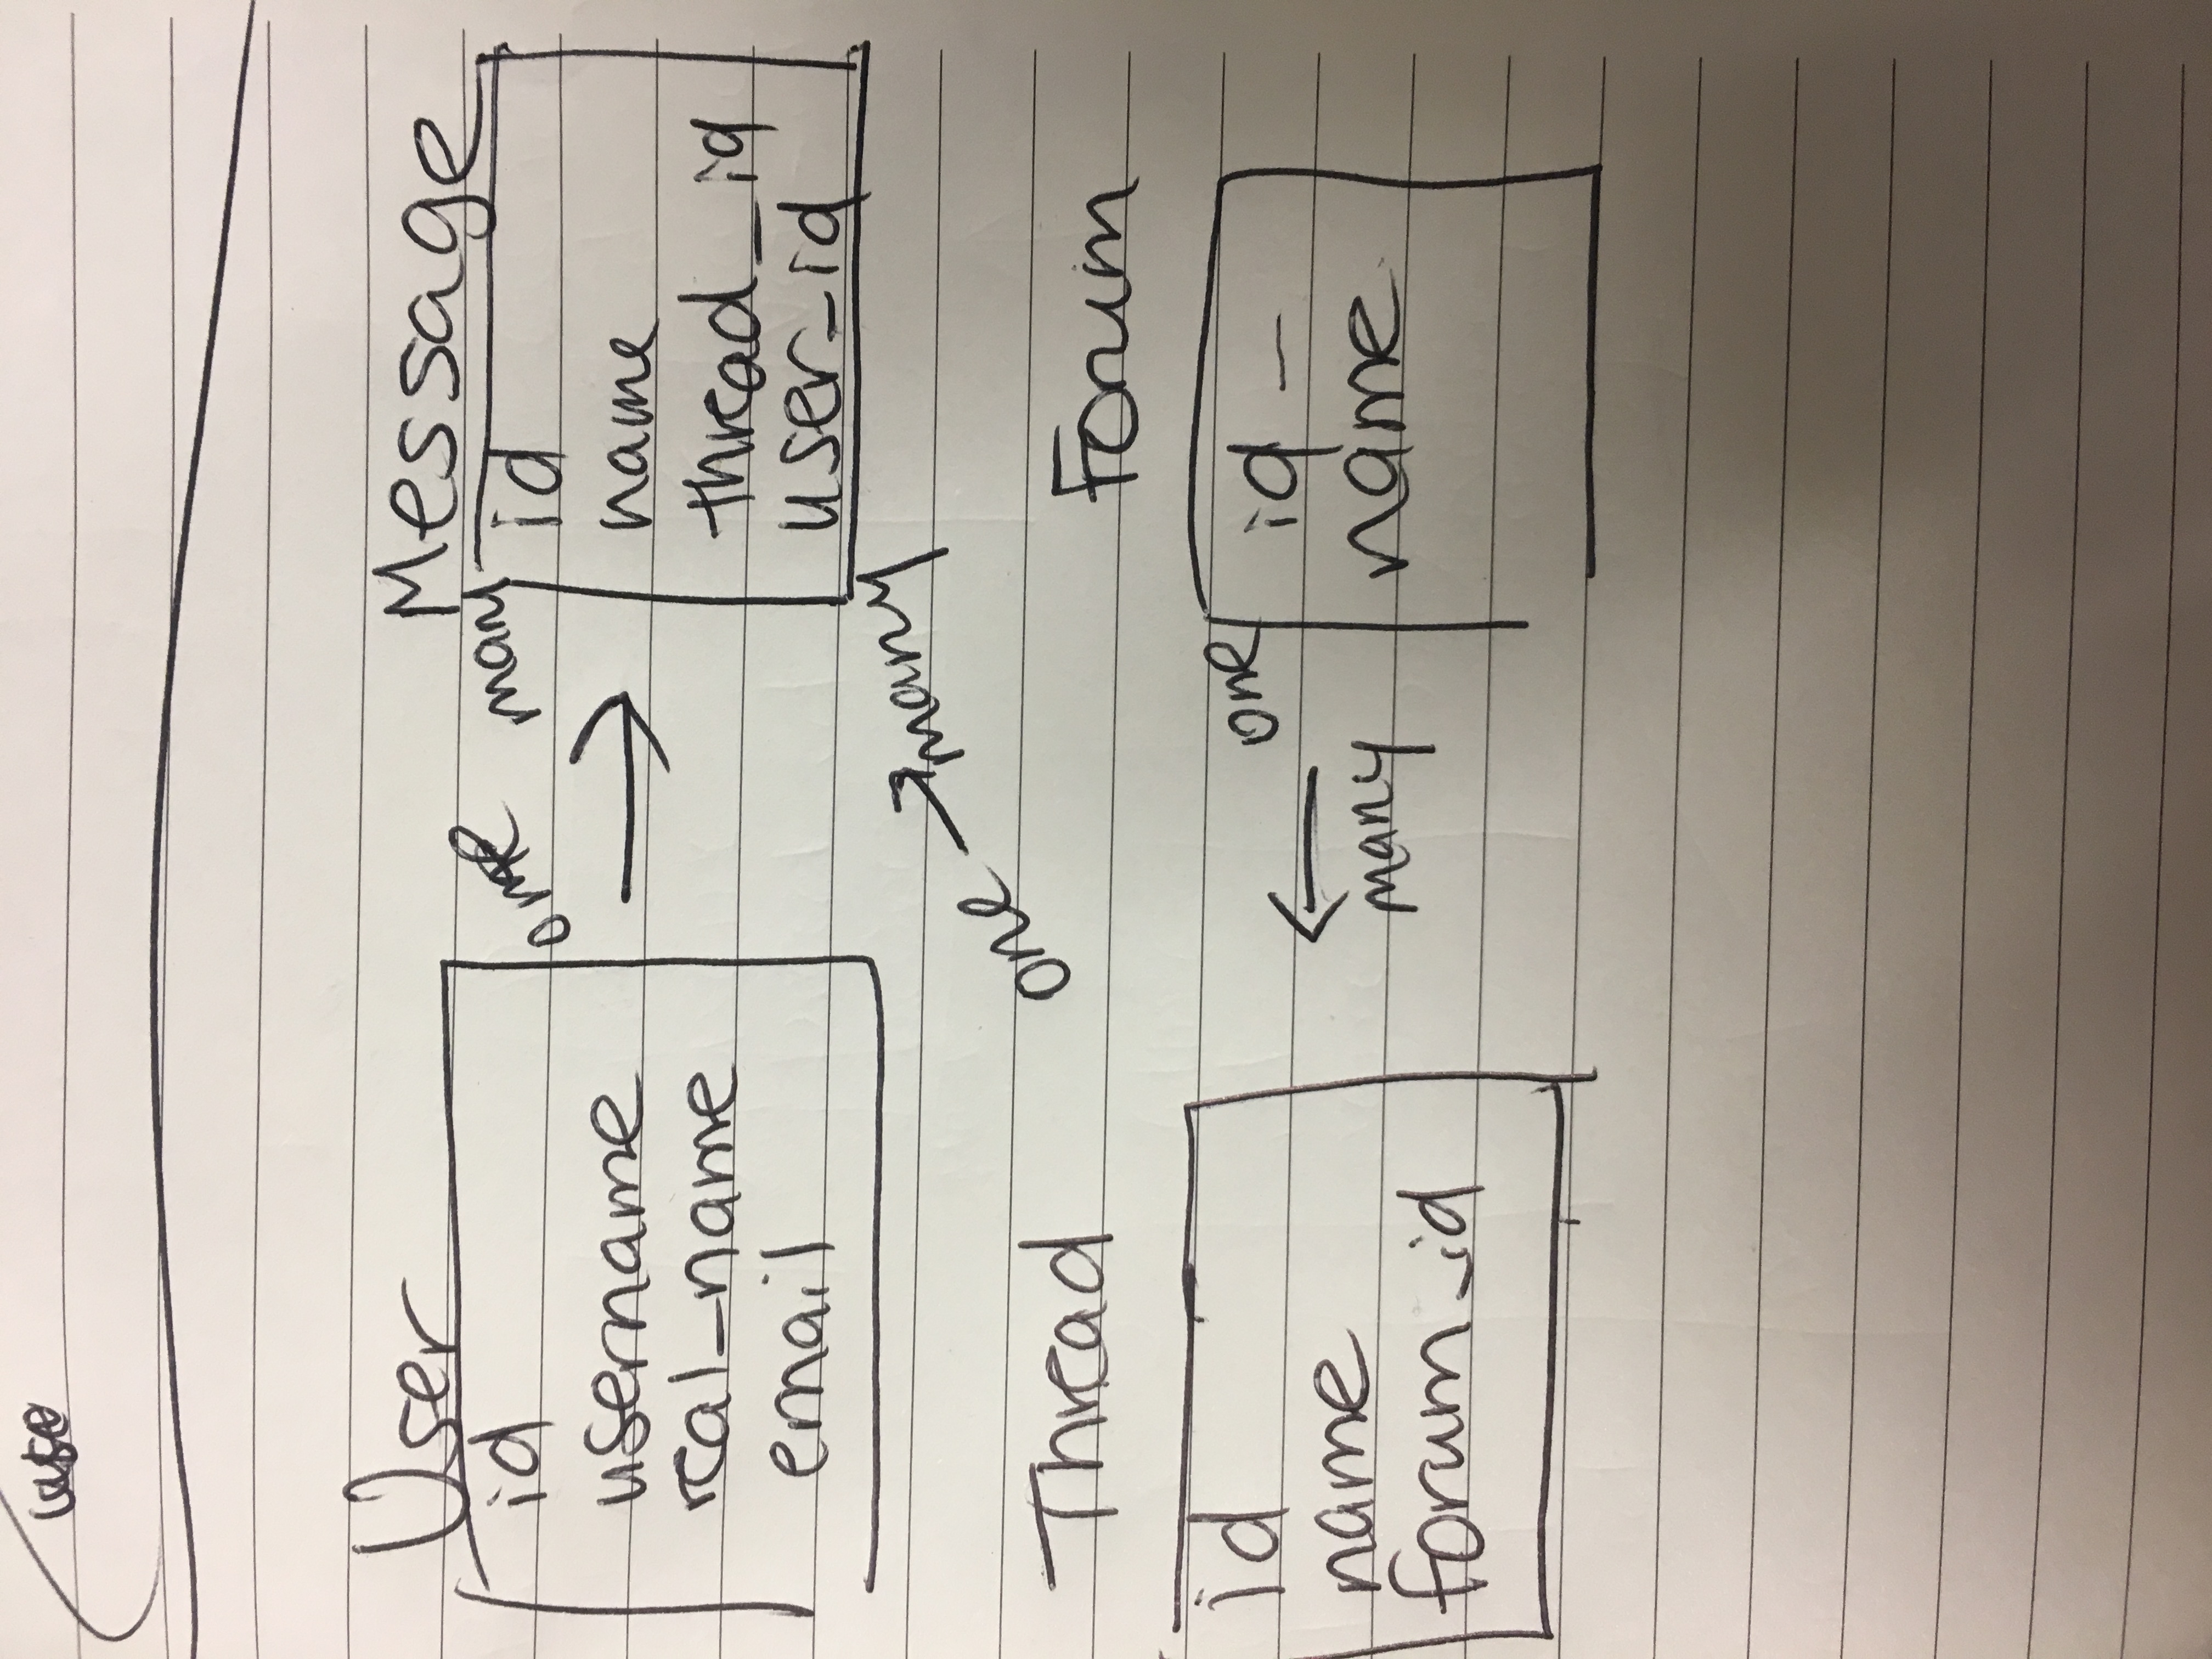 User
id
username
real_name
email
one
many
Message
id
name
thread_id
user_id
one
many
Thread
id
name
forum_id
one
many
Forum
id
name